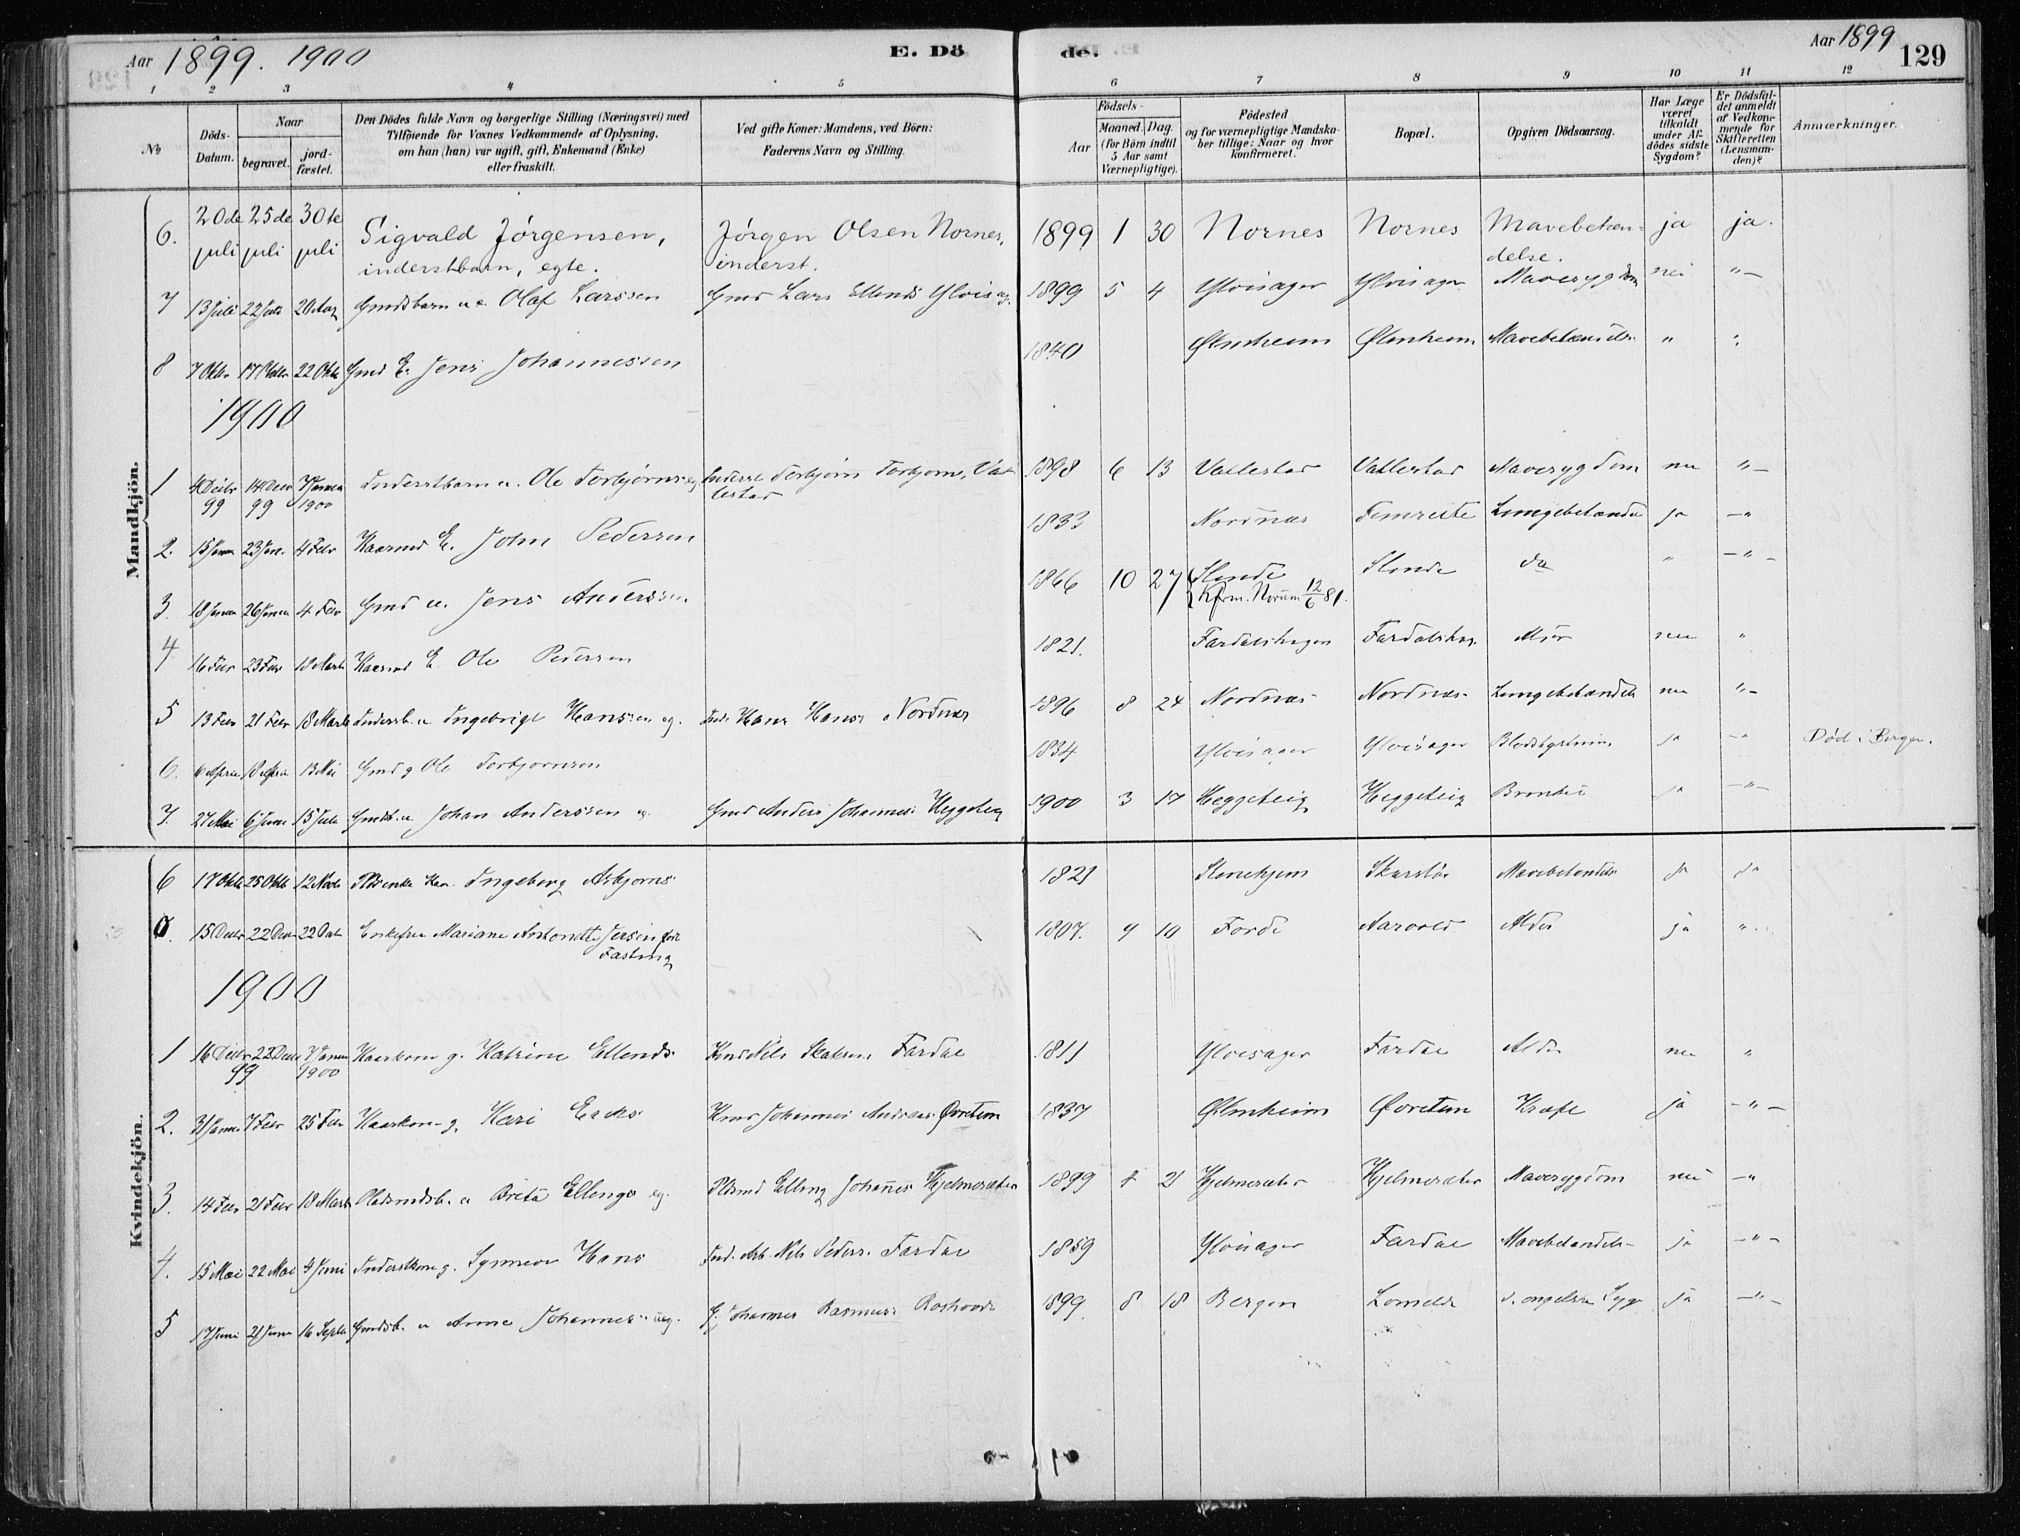 Aar 1899. 1900
E. Dö
de.
Aar 1899
129
1 2 3 4 5 6 7 8 9 10 11 12
№
Döds-Datum.
Naar
begravet.
jord-fæstet.
Den Dödes fulde Navn og borgerlige Stilling (Næringsvei) med
Tilföiende for Voxnes Vedkommende af Oplysning,
om han (hun) var ugift, gift, Enkemand (Enke)
eller fraskilt.
Ved gifte Koner: Mandens, ved Börn:
Faderens Navn og Stilling.
Födsels-
Aar
Maaned. Dag.
(for Börn indtil
5 Aar samt
Værnepligtige).
Födested
og for værnepligtige Mandska-
ber tillige: Naar og hvor
konfirmeret.
Bopæl.
Opgiven Dödsaarsag.
Har Læge
været
tilkaldt
under Af-
dödes sidste
Sygdom?
Er Dödsfal-
det anmeldt
af Vedkom-
mende for
Skifteretten
(Lensman-
den)?
Anmærkninger.
Mandkjön.
6. 20de juli 25de juli 30te juli Sigvald Jørgensen, inderstbarn, egte. Jørgen Olsen Nornes, inderst. 1899 1 30 Nornes Nornes Mavebetæn-
delse. ja ja.
7 13 Juli 22 Juli 20 Aug Gmdsbarn u. e Olaf Larssen Gmd Lars Ellends Ylvisag. 1899 5 4 Ylvisager Ylvisager Mavesygdom nei "-
8 7 Oktbr 17 Oktbr 22 Oktb Gmd E. Jens Johannessen 1840 Ølmheim Ølmheim "  "
1900
1 4 Decbr 99 14 Decbr 99 7 Januar 1900 Inderstbarn u. Ole Torbjørns eg Inderst Torbjørn Torbjørns. Val-
lestad 1898 6 13 Vallestad Vallestad Mavesygdom nei "-
2. 15 Januar 23 Jan. 4 Febr Kaarmd E. John Pedersen 1833 Nordnæs Fimreite Lungebetændelse ja -"
3. 18 Januar 26 Januar 4 Febr Gmd u. Jens Anderssen 1866 10 27 Slende
Kfm. Norum 12/6 81. Slende do " -"-
4 16 Febr 23 Febr 18 Marts Kaarmd E. Ole Pedersen 1821. Fardalshagen Fardalshag. nei "
5 13 Febr 21 Febr 18 Marts Inderstb. u Ingebrigt Hanssen eg. Ind. Hans Hans. Nordnæs 1896 8 24 Nordnæs Nordnæs Lungebetændelse nei "-
6. 6 April 18 April 13 Mai Gmd g Ole Torbjørnsen 1834 Ylvisager Ylvisager ja -" Død i Bergen.
7. 27 Mai 6 Juni 15 Juli Gmdsb. u. Johan Anderssen eg. Gmd Anders Johannes. Heggeteig 1900 3 17 Heggeteig Heggeteig ja -"-
Kvindekjön.
6 17 Oktb 25 Oktb 12 Novb Ingeborg Asbjørns 1821 Mavebetændelse ja ja
15 Decbr 22 Decbr 22 Decbr Enkefru Mariane Antonette Jersin født
Fasting 1807. 9 10 Førde Aarvold Alder ja "
1900
1 16 Decbr 99 22 Decbr 7 Januar 1900 Kaarkone g. Katrine Ellends Kmd Nils Fardal 1811 Ylvisager Fardal Alder nei "
2. 31 Januar 7 Febr 25 Febr Kaarkone g. Kari Kmd Johannes Andreas. Øvretun 1837 Ølmheim Øvretun Kræft ja -"-
3. 14 Febr 21 Febr 18 Marts Pladsmdsb. u Brita Ellings eg. Pladsmd Elling Johannes Hjelmesæter 1899 21 Hjelmesæter Hjelmesæter Mavesygdom nei -"
4. 15 Mai 22 Mai 4 Juni Inderstkone g. Synneva Hans Ind. Arb. Nils Peders. Fardal 1859 Ylvisager Fardal Mavebetændelse ja -"-
5 17 Juni 21 Juni 16 Septb Gmdsb. u Anna Johannes. uæg. Johannes Rasmus. 1899. 8 18 Bergen Lomelde d. engelske Syge ja -"-